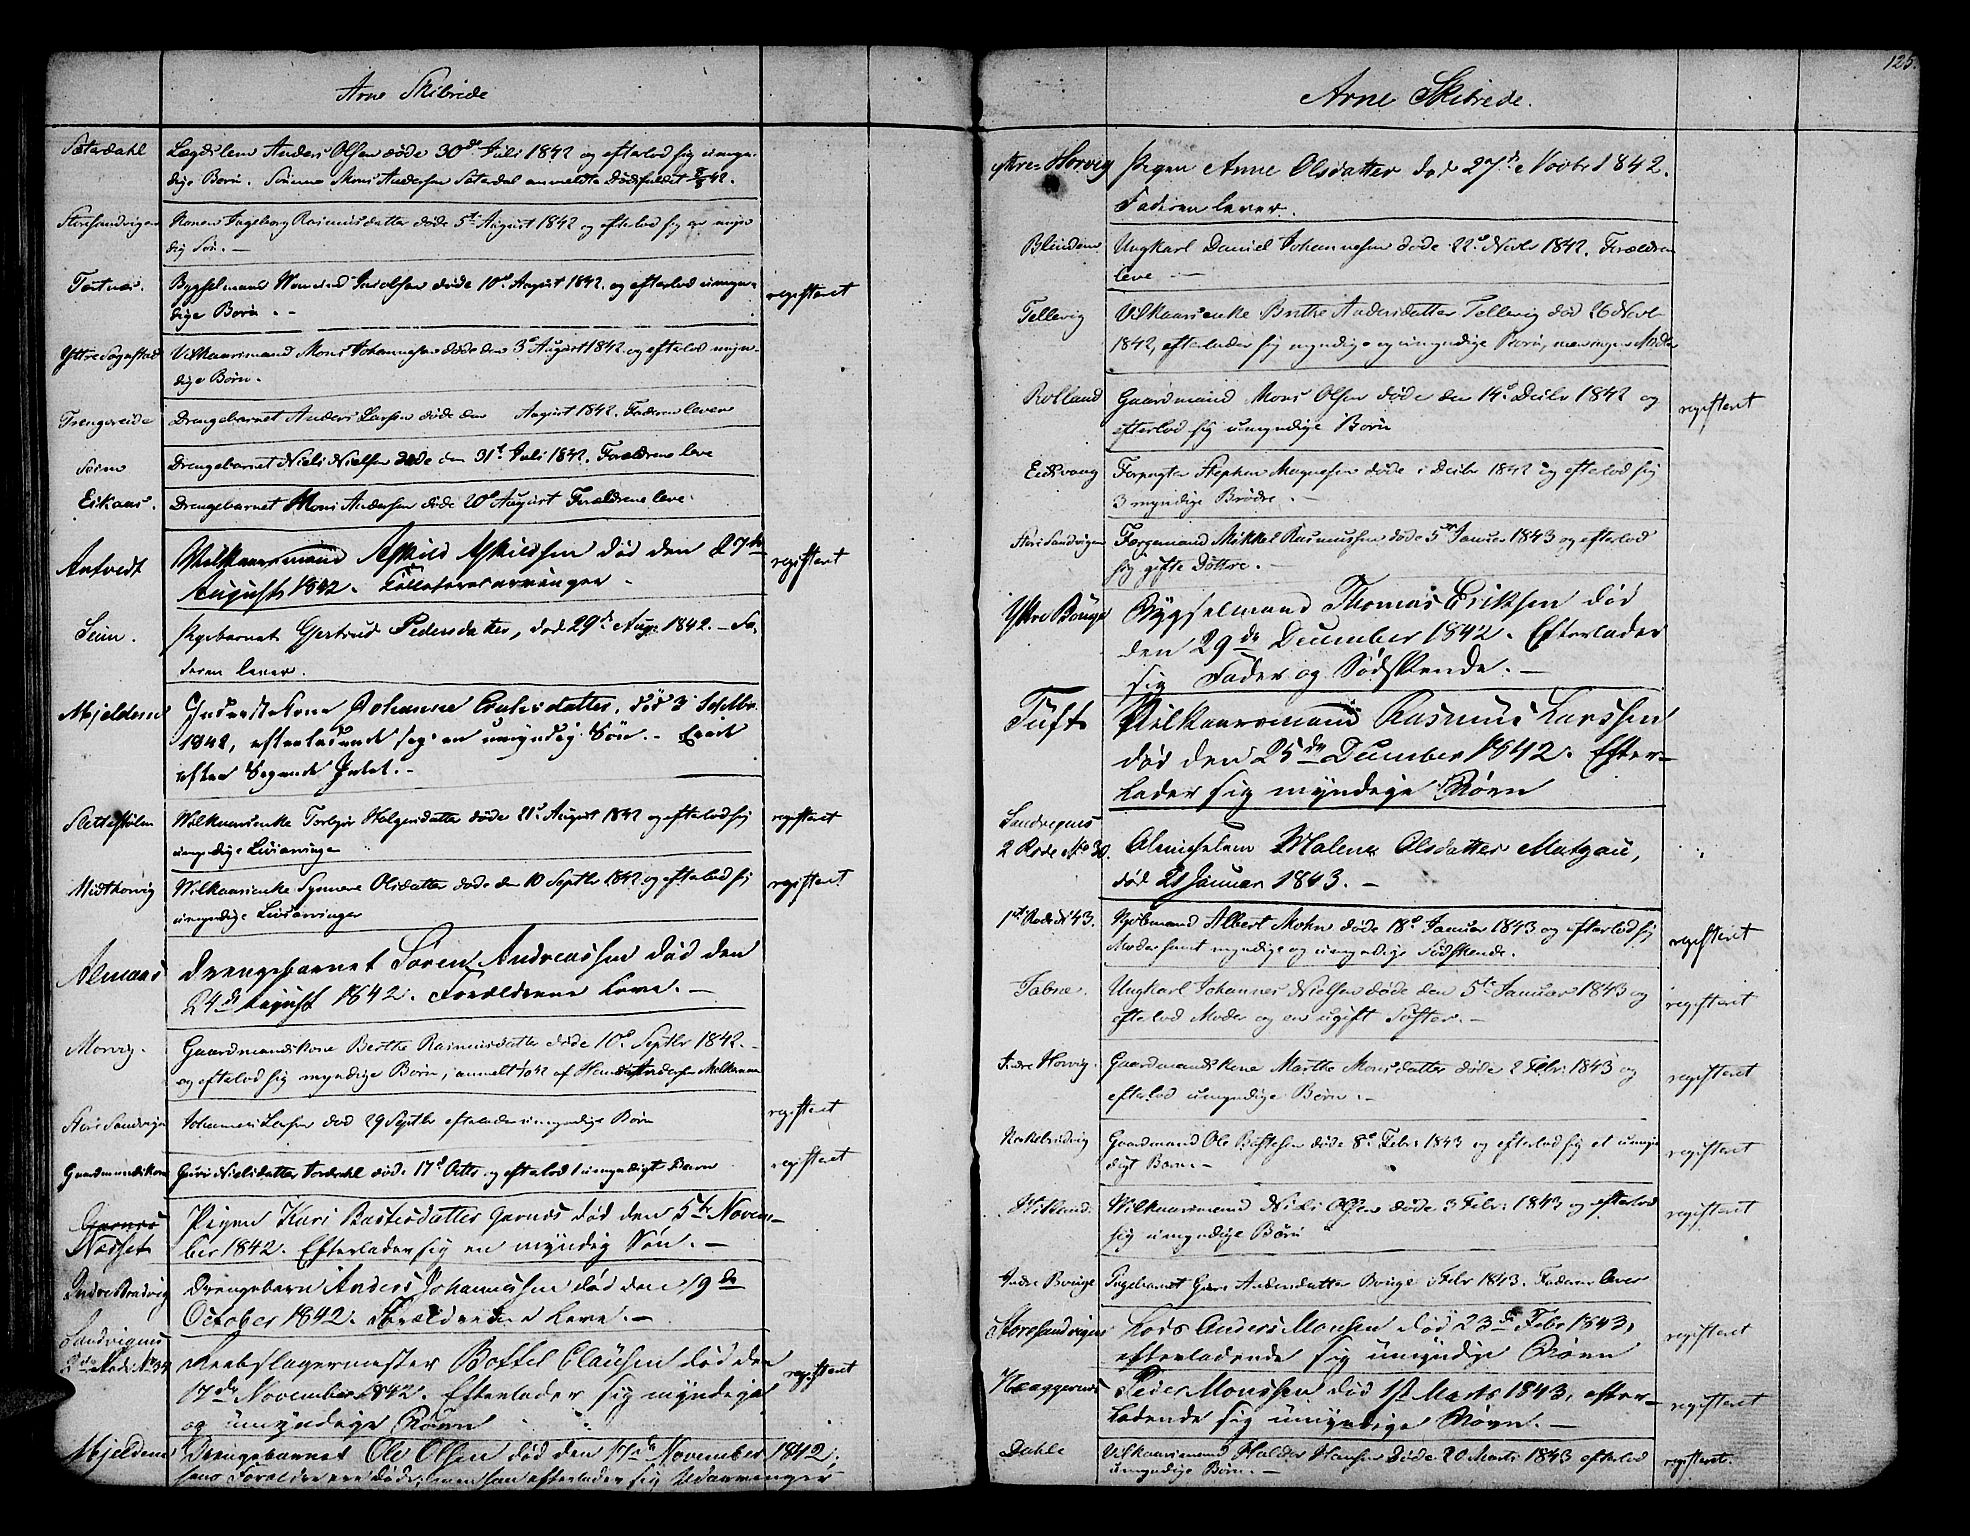 Arne Skibrede
Sæterdahl Lægdslem Anders Olsen døde 30de Juli 1842 og efterlod sig umyn-
dige Børn. Sønnen Mons Andersen Sæterdal anmeldte Dødsfaldet
Storesandvigen Konen Ingeborg Rasmusdatter døde 5te August 1842 og efterlod sig en myn-
dig Søn. –
Bygselmand Jacobsen døde 10de August 1842 og efterlod umyn-
dige Børn. – registeret
Yttre Vilkaarsmand Mons Johannesen døde den 3de August 1842 og efterlod myn-
dige Børn.
Trengereide Drengebarnet Anders Larsen døde den August 1842. Faderen lever
Drengebarnet Niels Nielsen døde den 31te Juli 1842. Forældrene leve
Eikaas. Drengebarnet Mons Andersen døde 20de August Forældrene leve.
Artvedt Vilkaarsmand Askild Askildsen død den 27de
August 1842. registeret
Seim. Pigebarnet Gertrud Pedersdatter, død 29de Aug: 1842. – Fa-
deren lever.
Mjeldem Johanne død 3 Septbr.
1842, efterladende sig en umyndig Søn. –
efter Sigende Intet. –
Wilkaarsenke Holgersdatter døde 21de August 1842 og efterlod sig
umyndige Livsarvinger registeret
Midthorvig Wilkaarsenke Synneve Olsdatter døde den 10 Septbr 1842 og efterlod sig
umyndige Livsarvinger registeret
Almaas Drengebarnet Søren Andreassen død den
24de August 1842. Forældrene leve. –
Morvig. Gaardmandskone Berthe Rasmusdatter døde 10de Septbr 1842. –
og efterlod sig myndige Børn, anmeldt af
Store Sandvigen Johannes Larsen død 29 Septbr efterlader umyndige Børn registeret
Gaardmandskone Guri Nielsdatter døde 17de Octo og efterlod 1 umyndigt Barn registeret
Garnes
Nædset Pigen Kari Bastesdatter Garnes død den 5te Novem-
ber 1842. Efterlader sig en myndig Søn. –
Indre Bradvig Drengebarn Anders Johannessen død den 19de
October 1842. Forældrene leve. –
Sandvigens
2de Rode No 34 Reebslagermester Bottel Clausen død den
17de November 1842. Efterlader sig myndige
og umyndige Børn registeret
Mjeldem Drengebarnet Ole Olsen død den 17de November 1842;
hans Forældre ere døde, men han efterlader sig Udarvinger
125.
Arne Skibrede.
Ytre Horvig Pigen Anne Olsdatter død 27de Novbr 1842.
Faderen lever.
Blindem Ungkarl Daniel Johannesen døde 22de Novbr 1842. Forældrene
leve –
Tellevig Vilkaarsenke Brithe Andersdatter Tellevig død 26 Novbr
1842, efterlader sig myndige og umyndige Børn,
Rolland Gaardmand Mons Olsen døde den 14de Decbr 1842 og
efterlod sig umyndige Børn registeret
Eidsvaag Forpagter Stephen Magnesen døde i Decbr 1842 og efterlod sig
3 myndige Brødre. –
Store Sandvigen Færgemand Mikkel Rasmussen døde 5te Januar 1843 og efterlod
sig gifte Døttre. –
Yttre Bouge Bygselmand Thomas Eriksen død
den 29de December 1842. Efterlader
sig Fader og Sødskende. –
Tuft Vilkaarsmand Rasmus Larssen
død den 25de December 1842. Efter-
lader sig myndige Børn
Sandvigens
2 Rode No 30. Almislem Malene Olsdatter
død 21 Januar 1843. –
1ste Rode No 43. Kjøbmand Albert Mohn døde 18de Januar 1843 og efterlod sig
Moder samt myndige og umyndige Sødskende. registeret
Ungkarl Johannes Nielsen døde den 5te Januar 1843 og
efterlod Moder og en ugift Søster. – registeret
Indre Horvig. Gaardmandskone Marthe Monsdatter døde 2 Febr: 1843 og
efterlod umyndige Børn. – registeret
Gaardmand Ole døde 8de Febr: 1843 og efterlod sig et umyn-
digt Barn – registeret
Wilkaarsmand Niels Olsen døde 3 Febr: 1843 og efterlod
sig umyndige Børn registeret
Indre Bouge Pigebarnet Andersdatter Bouge i Febr 1843. Faderen lever
Storesandvigen Lods Anders Monsen død 23de Febr 1843,
efterladende sig umyndige Børn registeret
Peder Monssen død 1ste Marts 1843, efter-
ladende sig umyndige Børn. – registeret
Dahle Vilkaarsmand Haldor Hansen døde 20 Marts 1843 efterlod
umyndige Børn. – registeret.